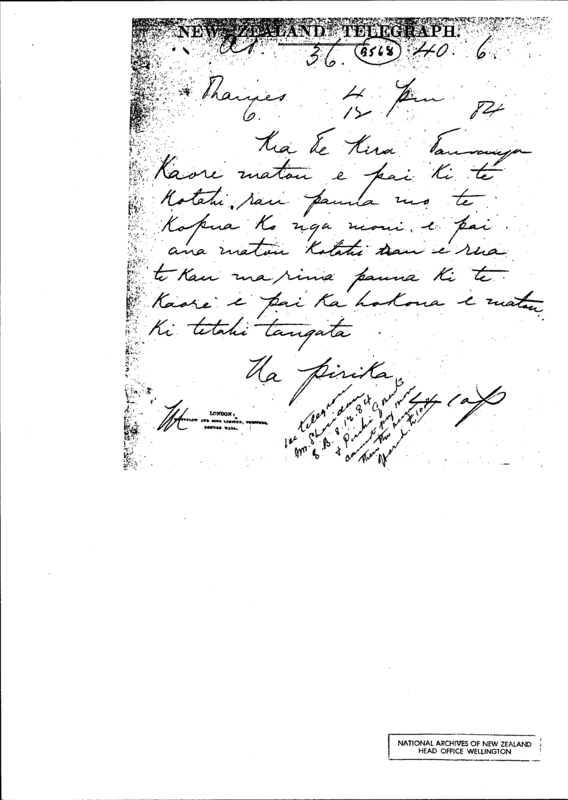 NEW ZEALAND TELEGRAPH.
36. B568 40. 6.
Thames 4 pm
6. 12 84
Kia Te Kira Tauranga
Kaore matou e pai ki te
Kotahi rau pauna mo te
Kopua Ko nga moni e pai
ana matou Kotahi rau e rua
te Kau ma rima pauna Ki te
Kaore e pai Ka hokona e matou
Ki tetahi tangata
Na Pirika
LONDON,
AND SONS LIMITED, PRINTERS,
LONDON WALL.
telegram
Mr. Sheridan
8.12.84
cannot pay more
than
NATIONAL ARCHIVES OF NEW ZEALAND
HEAD OFFICE WELLINGTON